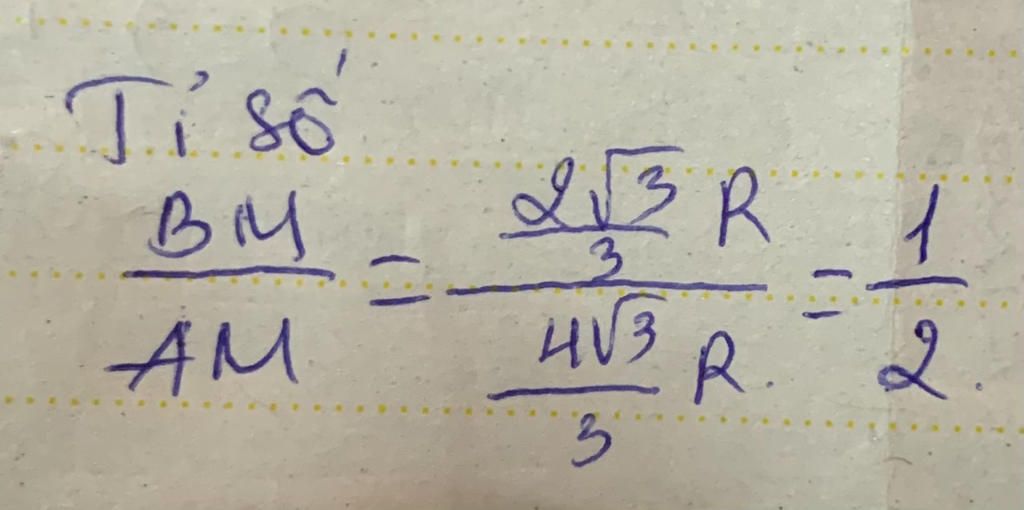 Tỉ số
BM/AM = (2√3/3 R)/(4√3/3 R.) = 1/2.